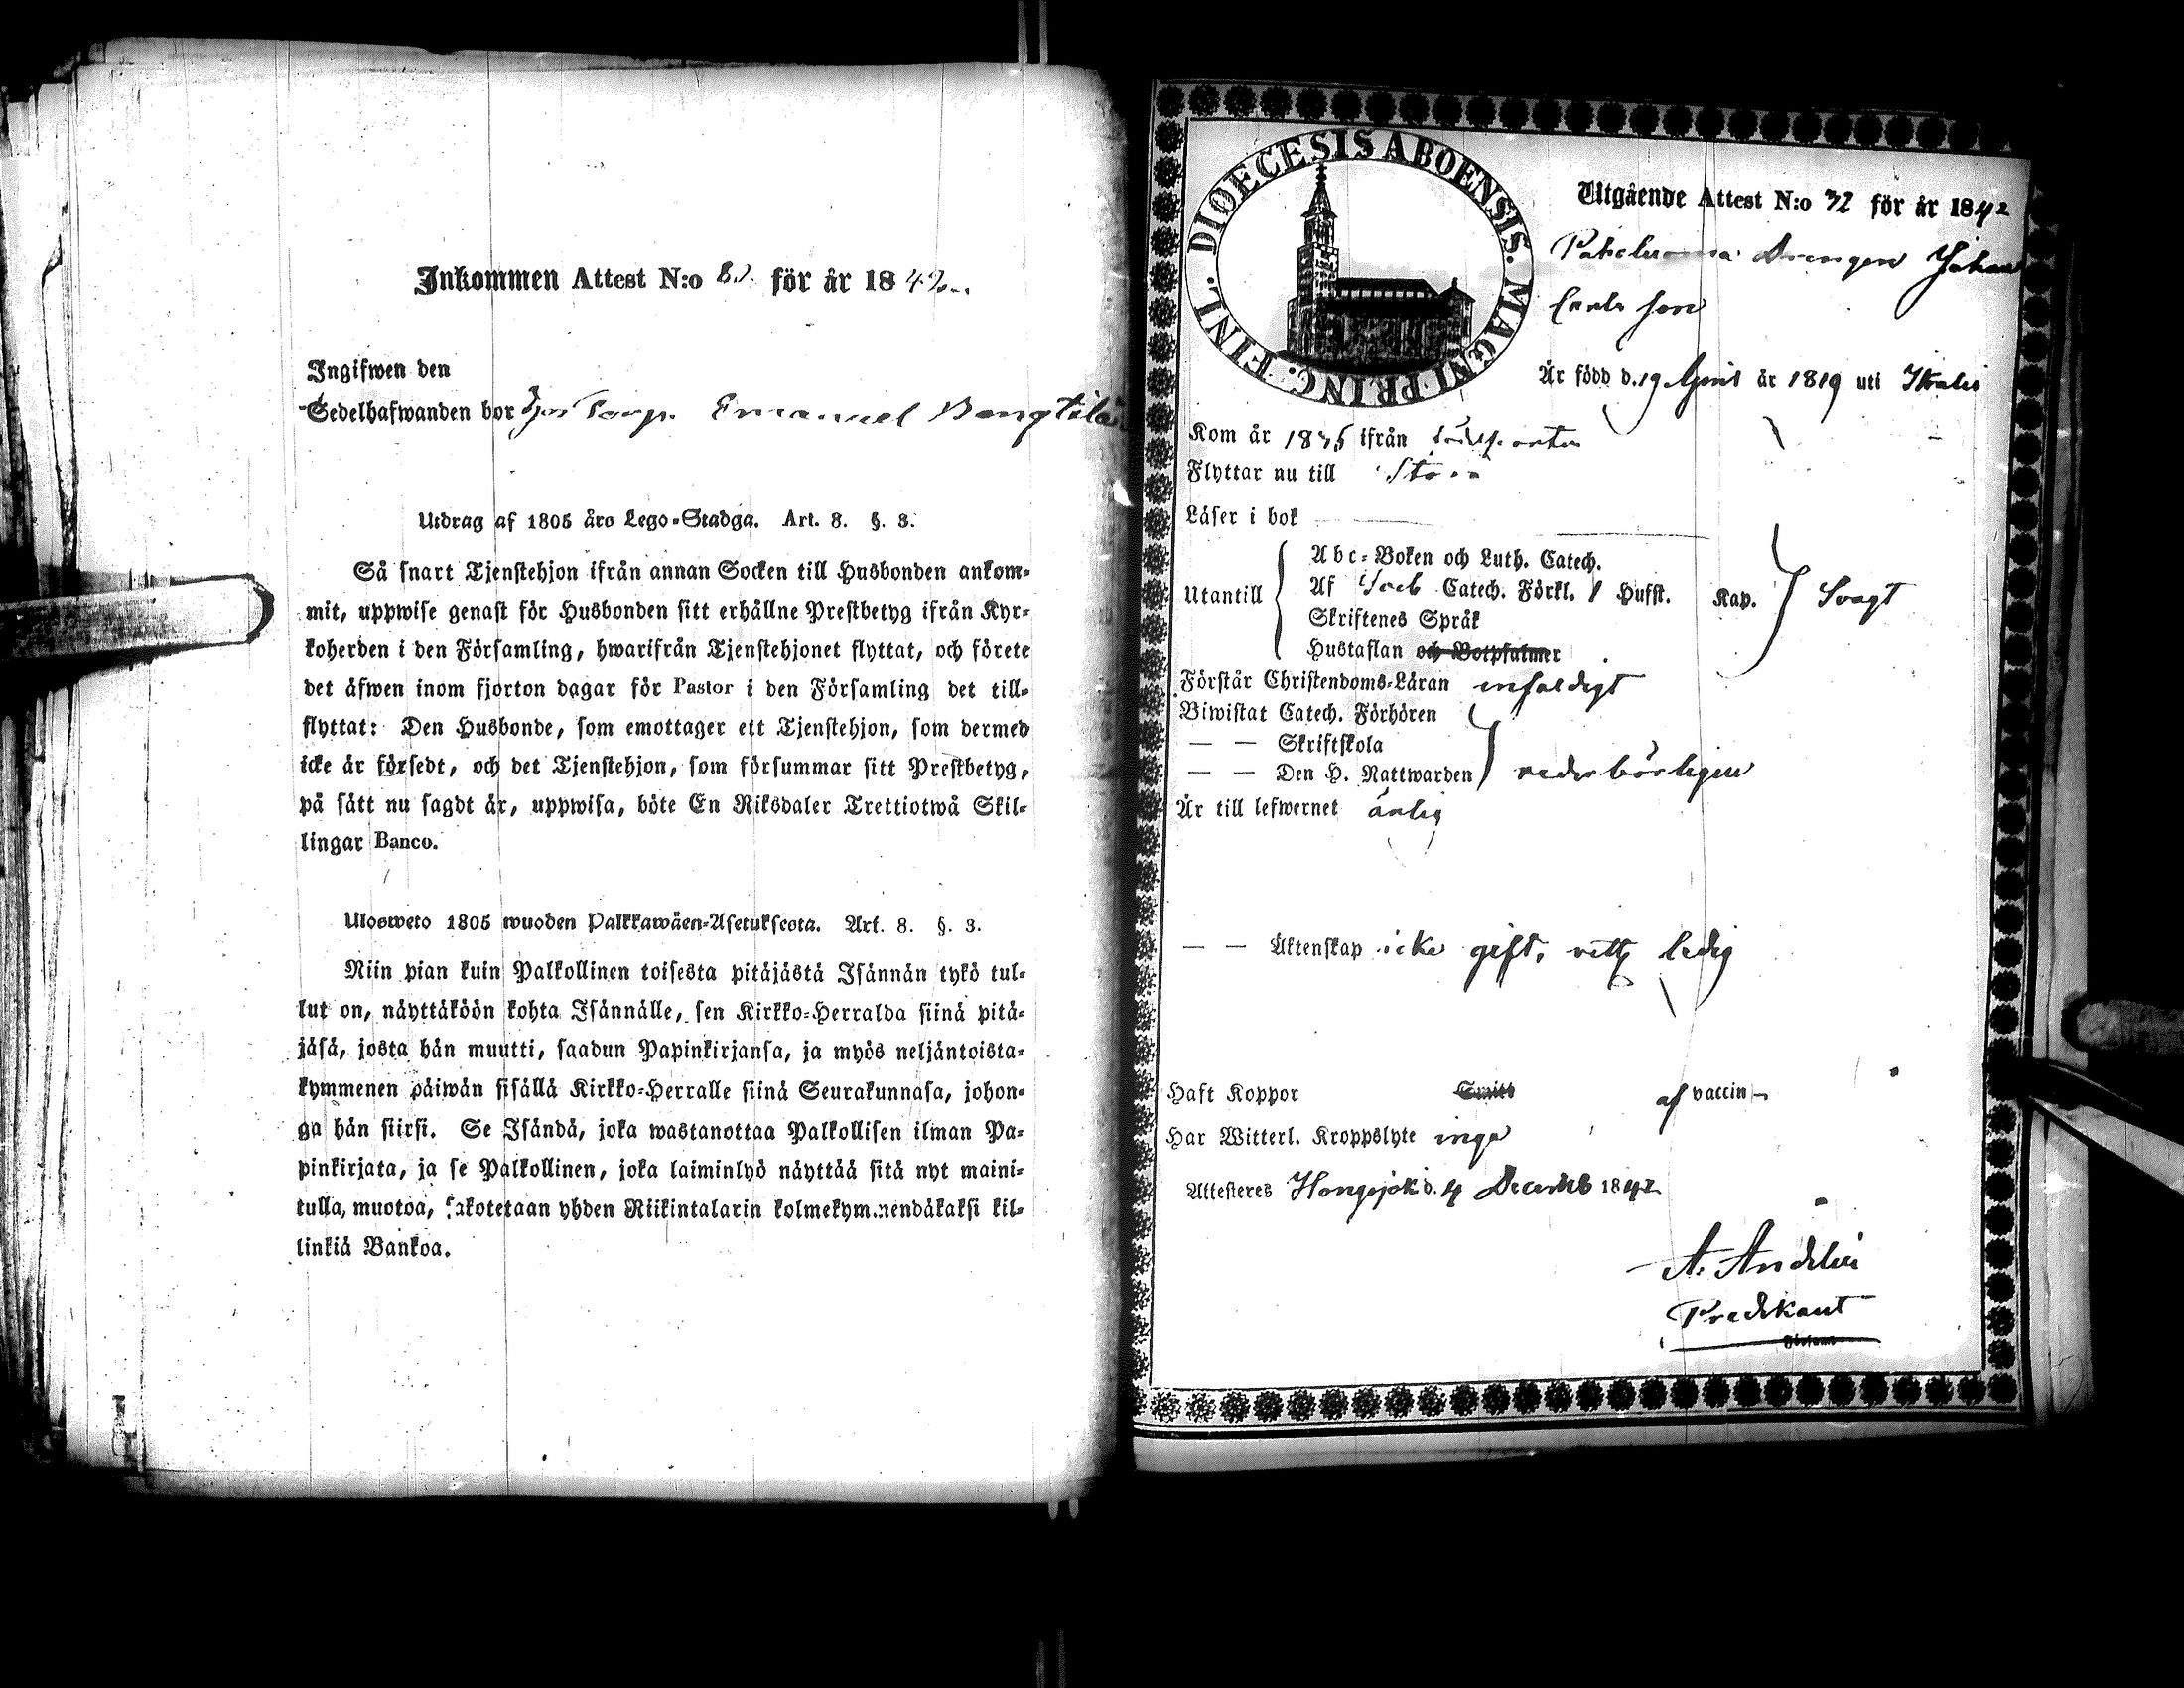 Inkommen Attest N:o för år 1842
Ingifwen den
Sedelhafwanden bor Torp. Emanuel
Utdrag af 1805 års Lego-Stadga. Art. 8. §. 3.
Så snart Tjenstehjon ifrån annan Socken till Husbonden ankom-
mit, uppwise genast för Husbonden sitt erhållne Prestbetyg ifrån Kyr-
koherden i den Församling, hwarifrån Tjenstehjonet flyttat, och förete
det äfwen inom fjorton dagar för Pastor i den Församling det till-
flyttat: Den Husbonde, som emottager ett Tjenstehjon, som dermed
icke är försedt, och det Tjenstehjon, som försummar sitt Prestbetyg,
på sätt nu sagdt är, uppwisa, böte En Riksdaler Trettiotwå Skil-
lingar Banco.
Ulosweto 1805 wuoden Palkkawäen-Asetuksesta. Art. 8. §. 3.
Niin pian kuin Palkollinen toisesta pitäjästä Isännän tykö tul-
lut on, näyttäköön kohta Isännälle, sen Kirkko-Herralda siinä pitä-
jäsä, josta hän muutti, saadun Papinkirjansa, ja myös neljäntoista-
kymmenen päiwän sisällä Kirkko-Herralle siinä Seurakunnasa, johon-
ga hän siirsi. Se Isändä, joka wastanottaa Palkollisen ilman Pa-
pinkirjata, ja se Palkollinen, joka laiminlyö näyttää sitä nyt maini-
tulla, muotoa, sakotetaan yhden Riikintalarin kolmekymmendäkaksi kil-
linkiä Bankoa.
DIOECESIS ABOENSIS. MAGNI PRINC. FINL.
Utgående Attest N:o 32 för år 1842
Drengen Johan
Carls son
Är född d. 19 April år 1819 uti Ikalis
Kom år ifrån
Flyttar nu till
Läser i bok
Utantill
Abc-Boken och Luth. Catech.
Af Sveb Catech. Förkl. / Hufst. Kap. Svagt
Skriftenes Språk
Hustaflan och Botpsalmer
Förstår Christendoms-Läran enfaldigt
Biwistat Catech. Förhören
— — Skriftskola
— — Den H. Nattwarden vederbörligen
Är till lefwernet ärlig
— — Äktenskap icke gift, ledig
Haft Koppor Smitt af vaccin
Har Witterl. Kroppslyte inga
Attesteres Hongojoki d. 4 Decemb 1842
A. Andelin
Predikant